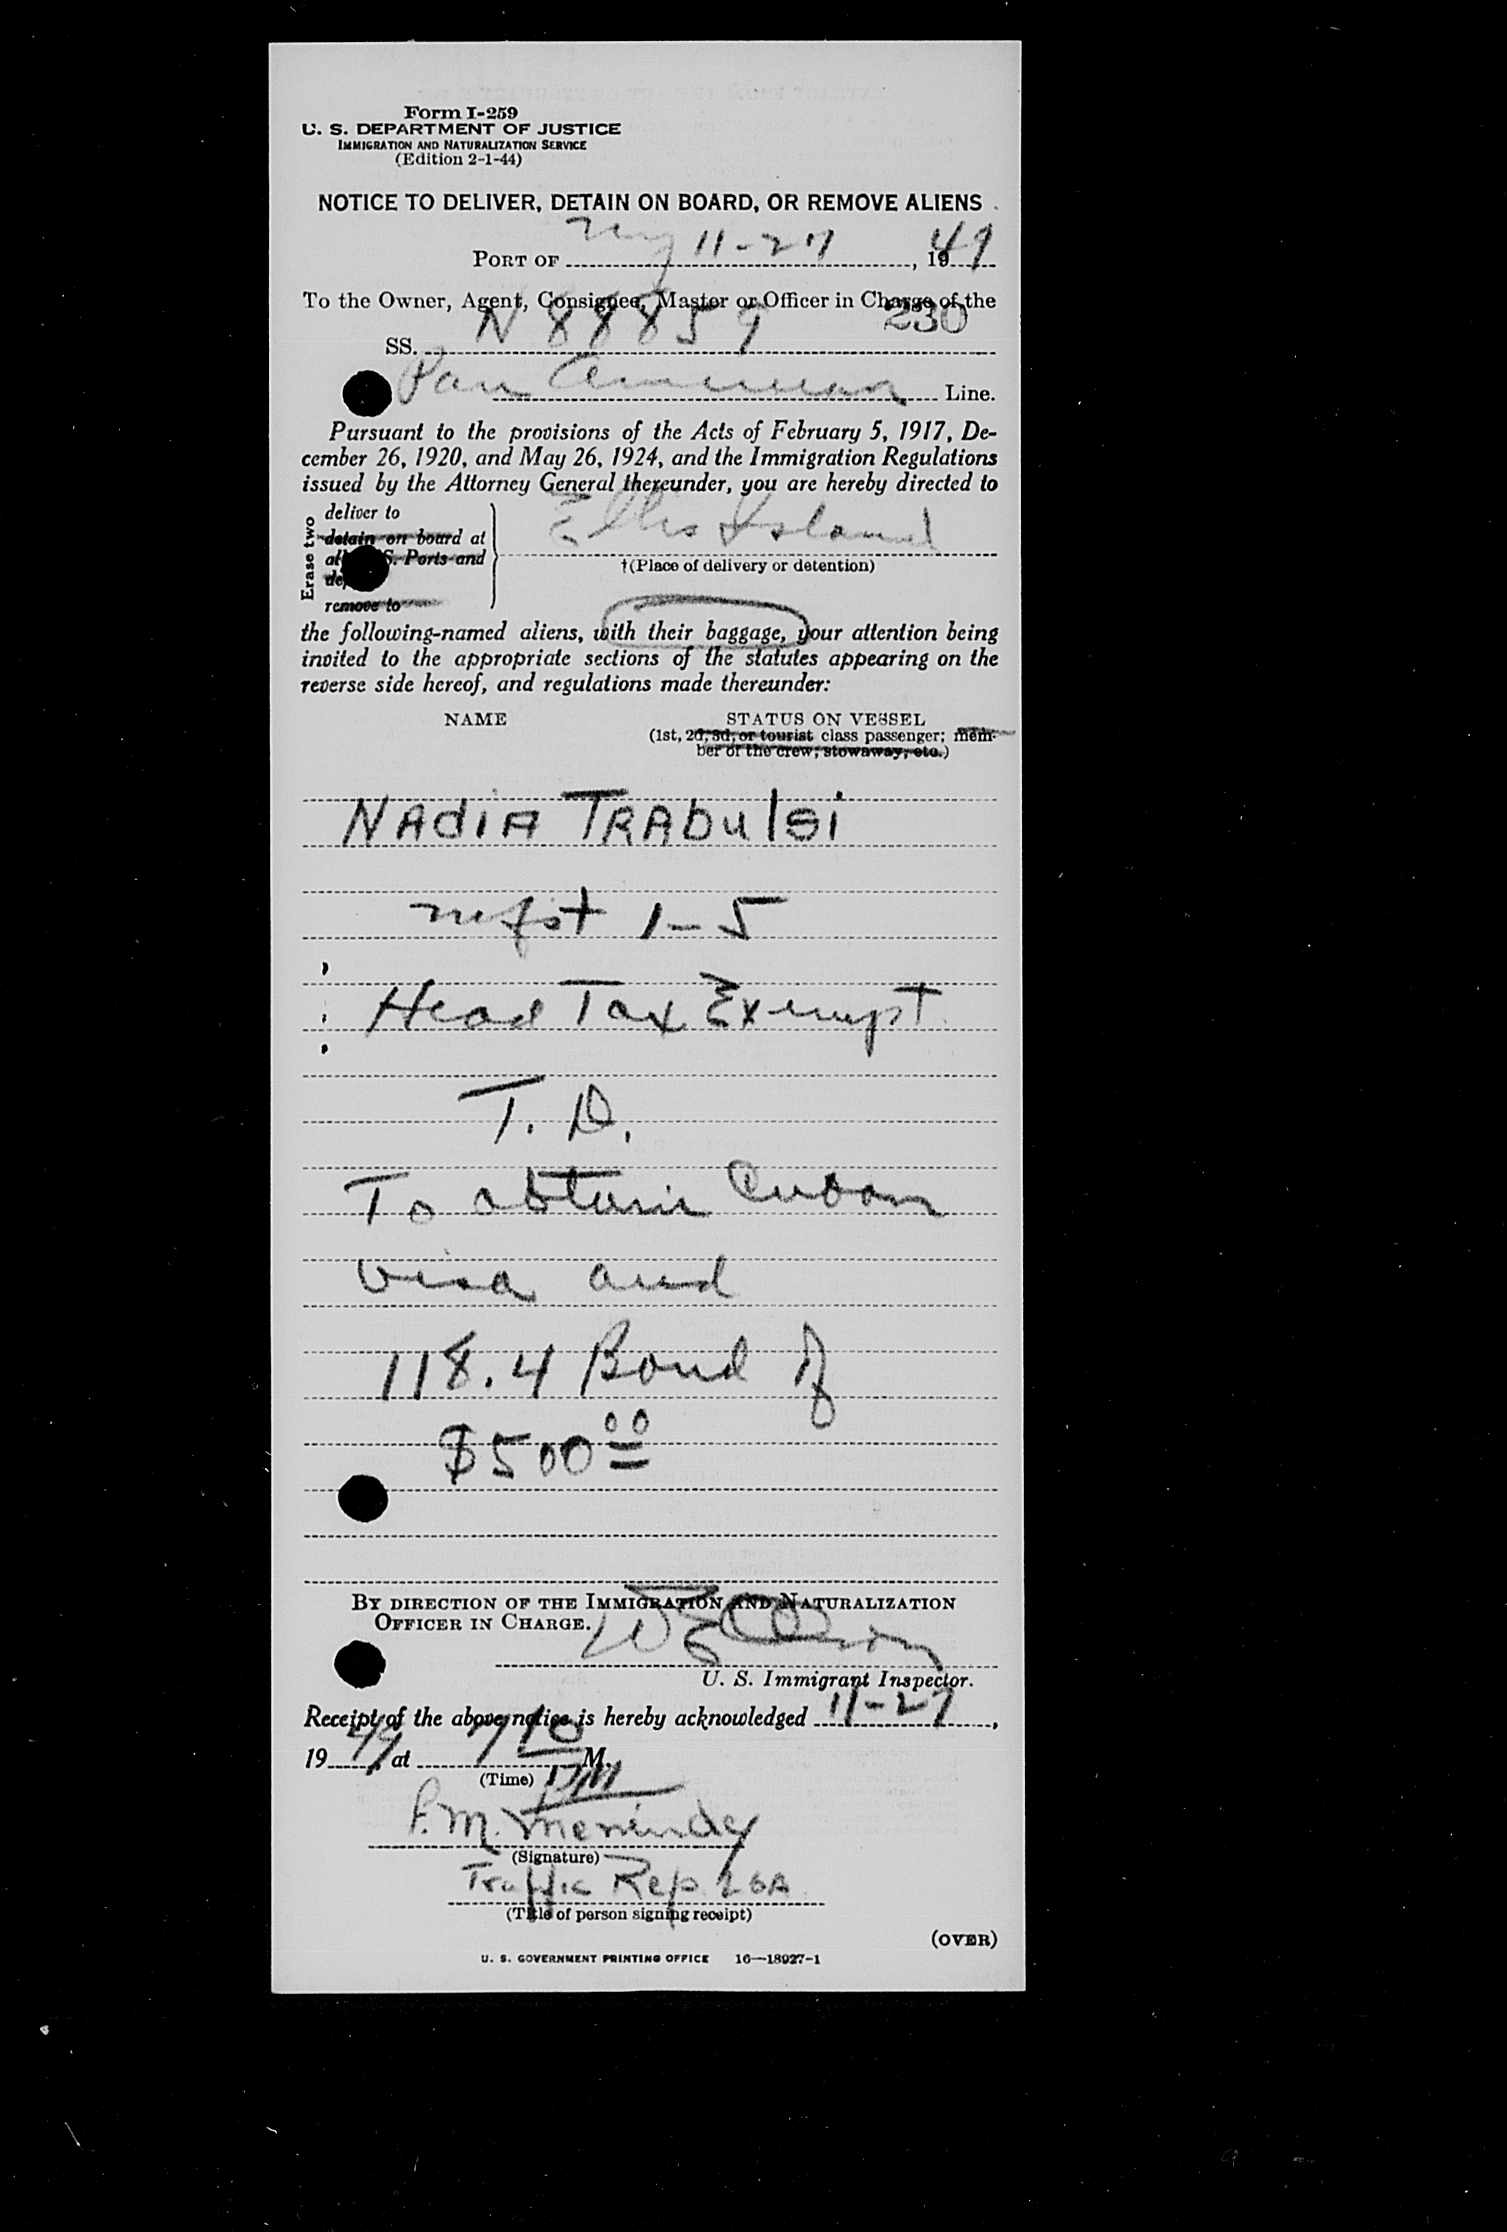 Form I-259
U. S. DEPARTMENT OF JUSTICE
IMMIGRATION AND NATURALIZATION SERVICE
(Edition 2-1-44)
NOTICE TO DELIVER, DETAIN ON BOARD, OR REMOVE ALIENS
PORT OF NY 11-27, 1949
To the Owner, Agent, Consignee, Master or Officer in Charge of the
230
SS. N 88859
Pan American Line.
Pursuant to the provisions of the Acts of February 5, 1917, De-
cember 26, 1920, and May 26, 1924, and the Immigration Regulations
issued by the Attorney General thereunder, you are hereby directed to
Erase two
deliver to
detain on board at
S. Ports and
remove to
Ellis Island
†(Place of delivery or detention)
the following-named aliens, with their baggage, your attention being
invited to the appropriate sections of the statutes appearing on the
reverse side hereof, and regulations made thereunder:
NAME STATUS ON VESSEL
(1st, 2d, 3d, or tourist class passenger; mem-
ber of the crew, stowaway, etc.)
NADIA TRABULSI
mfst 1-5
Head Tax Exempt
T. D.
To obtain Cuban
visa and
118.4 Bond of
$500 00
BY DIRECTION OF THE IMMIGRATION AND NATURALIZATION
OFFICER IN CHARGE.
U. S. Immigrant Inspector.
Receipt of the above notice is hereby acknowledged 11-27,
1949 at 7 10 M.
(Time) PM
P. M.
(Signature)
Traffic Rep.
(Title of person signing receipt)
(OVER)
U. S. GOVERNMENT PRINTING OFFICE 16—18927-1